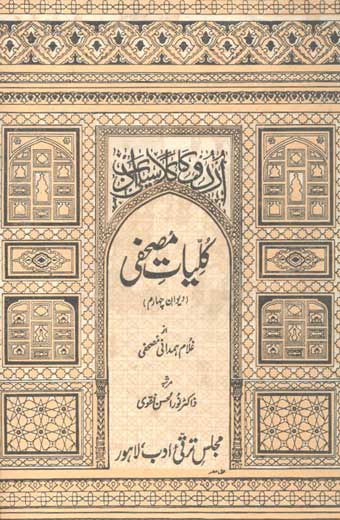 اردو کا کلاسیکی ادب
کلیاتِ مصحفی
(دیوان چہارم)
از
غلام ہمدانی مصحفی
مرتبہ
ڈاکٹر نورالحسن نقوی
مجلس ترقیٔ ادب، لاہور